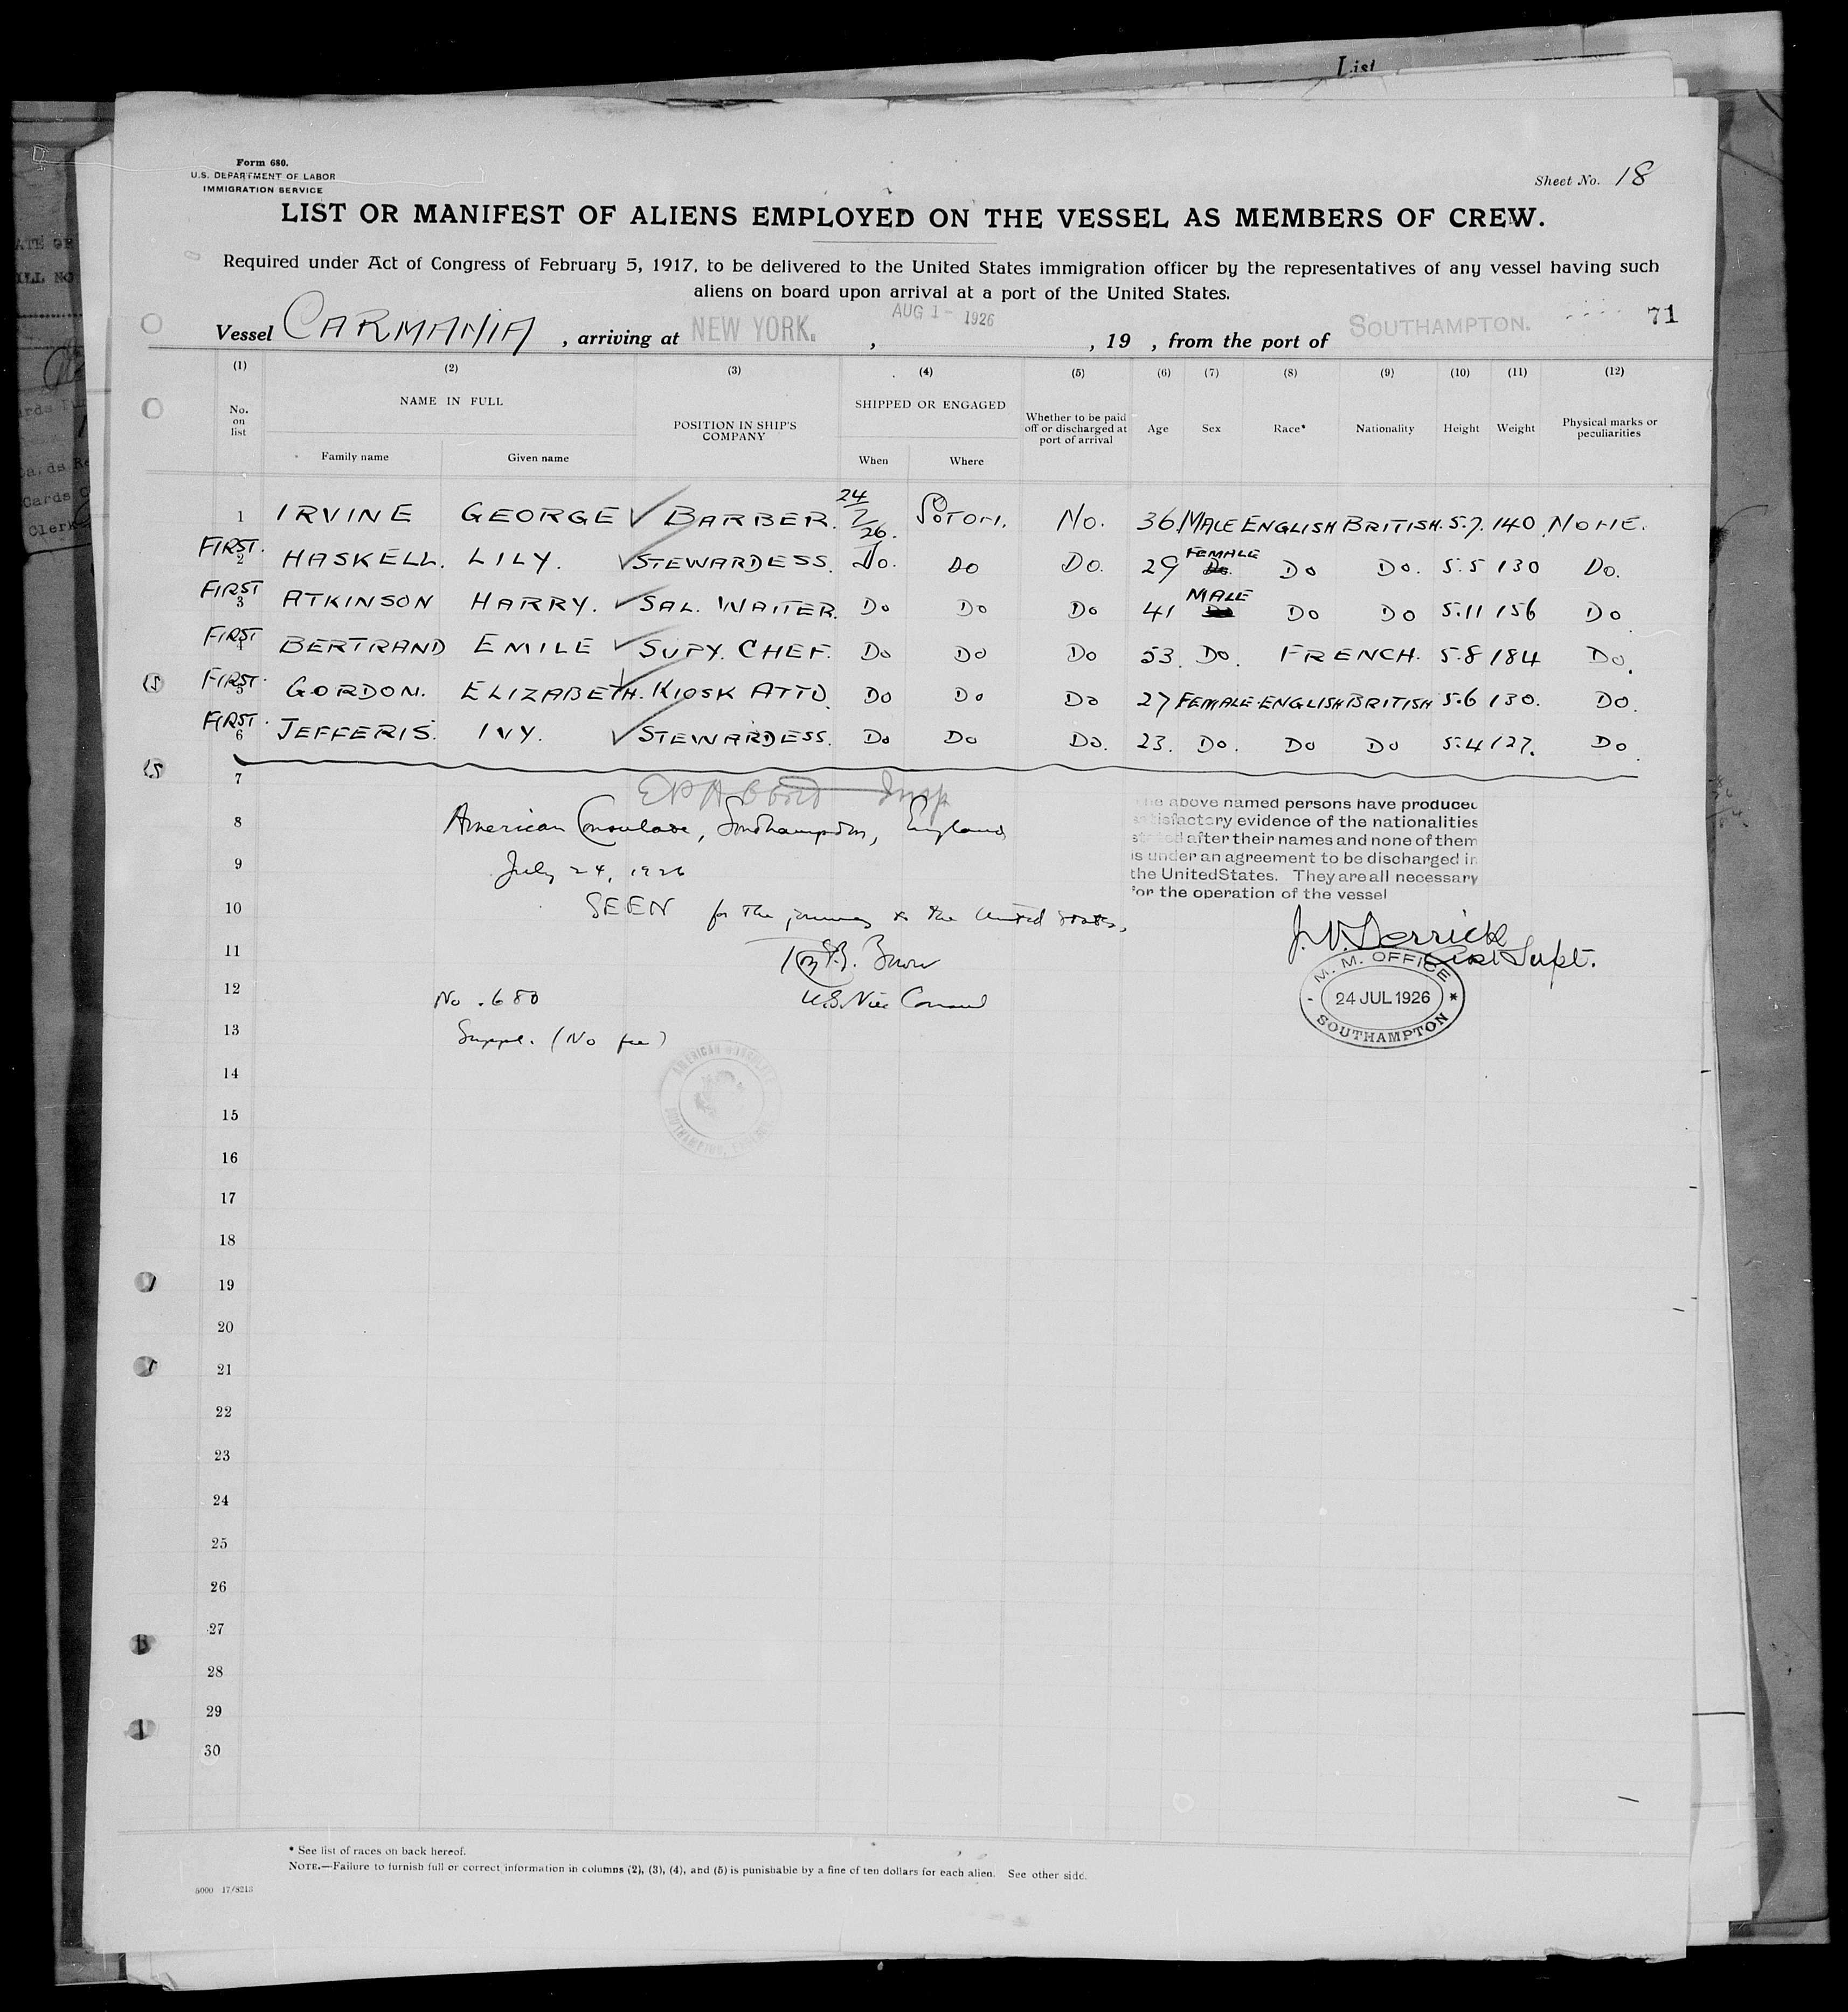 List
Form 680.
U.S. DEPARTMENT OF LABOR
IMMIGRATION SERVICE
Sheet No. 18
LIST OR MANIFEST OF ALIENS EMPLOYED ON THE VESSEL AS MEMBERS OF CREW.
Required under Act of Congress of February 5, 1917, to be delivered to the United States immigration officer by the representatives of any vessel having such
aliens on board upon arrival at a port of the United States.
Vessel CARMANIA, arriving at NEW YORK. , AUG 1 - 1926 , 19 , from the port of SOUTHAMPTON. 71
(1) (2) (3) (4) (5) (6) (7) (8) (9) (10) (11) (12)
No. on list NAME IN FULL Family name Given name POSITION IN SHIP'S COMPANY SHIPPED OR ENGAGED When Where Whether to be paid off or discharged at port of arrival Age Sex Race* Nationality Height Weight Physical marks or peculiarities
1 IRVINE GEORGE ✓ BARBER. 24/7/26. SOTON. NO. 36 MALE ENGLISH BRITISH. 5.7. 140 NONE.
FIRST. 2 HASKELL. LILY. ✓ STEWARDESS. Do. Do Do. 29 FEMALE Do. Do Do. 5.5 130 Do.
FIRST 3 ATKINSON HARRY. ✓ SAL. WAITER. Do Do Do 41 MALE Do Do 5.11 156 Do
FIRST 4 BERTRAND EMILE ✓ SUPY. CHEF. Do Do Do 53. Do. FRENCH. 5.8 184 Do.
FIRST. 5 GORDON. ELIZABETH. ✓ KIOSK ATTD. Do Do Do 27 FEMALE ENGLISH BRITISH 5.6 130. DO.
FIRST. 6 JEFFERIS. IVY. ✓ STEWARDESS. Do Do Do. 23. Do. Do Do 5.4 127. Do.
7 Insp
8 American Consulate, Southampton, England
9 July 24, 1926
10 SEEN for the journey to the United States,
11
12 No. 680 U.S. Vice Consul
13 Suppl. (No fee)
The above named persons have produced
satisfactory evidence of the nationalities
stated after their names and none of them
is under an agreement to be discharged in
the United States. They are all necessary
for the operation of the vessel
J. V. Derrick
Supt.
M. M. OFFICE
24 JUL 1926
SOUTHAMPTON
AMERICAN CONSULATE
SOUTHAMPTON, ENGLAND
14
15
16
17
18
19
20
21
22
23
24
25
26
27
28
29
30
* See list of races on back hereof.
NOTE.—Failure to furnish full or correct information in columns (2), (3), (4), and (5) is punishable by a fine of ten dollars for each alien. See other side.
5000 17/8213